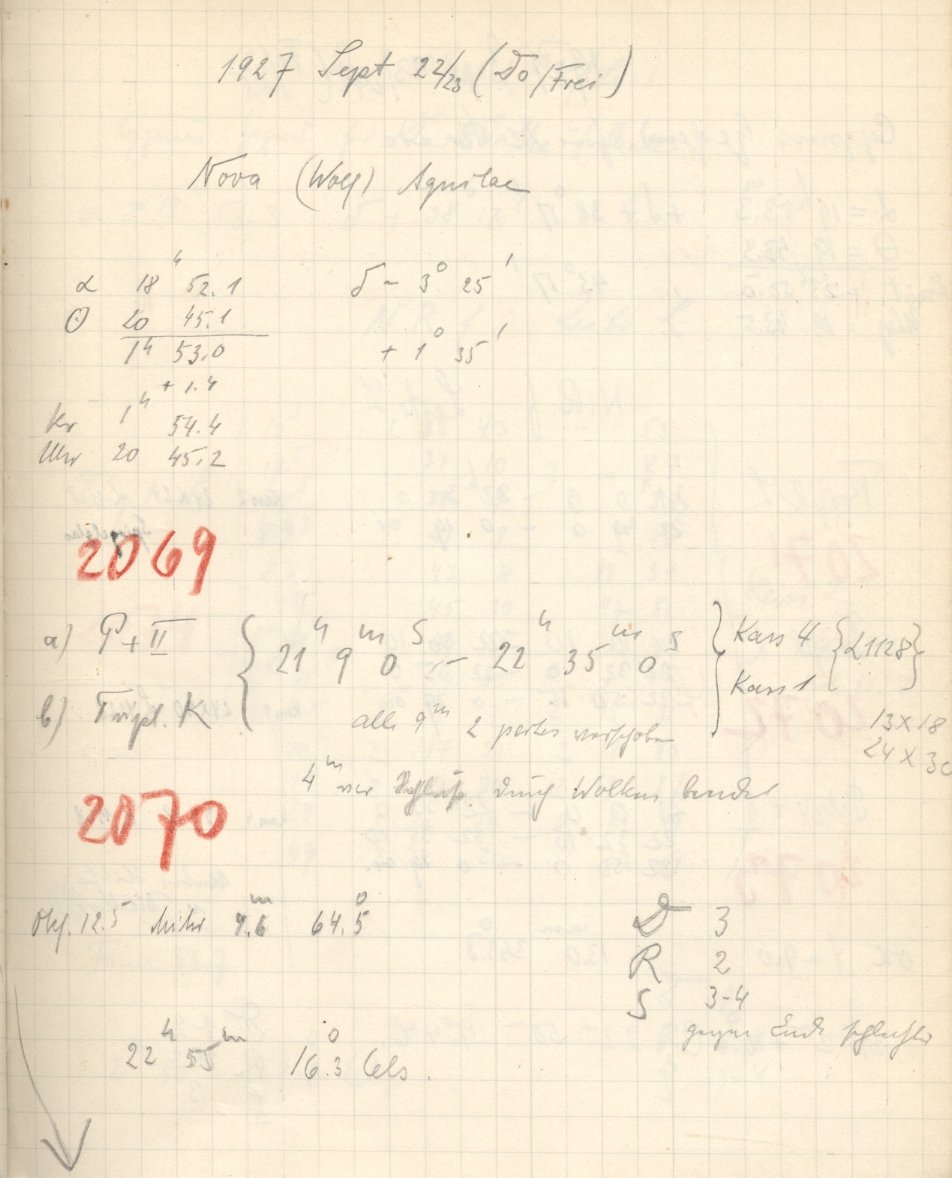 1927 Sept 22/23 (Do/Frei)
Nova (Wolf) Aquilae
α 18ʰ 52.1 δ − 3° 25'
Θ 20 45.1
1ʰ 53.0 + 1° 35'
+ 1.4
1ʰ 54.4
Uhr 20 45.2
2069
a) P + II { 21ʰ 9ᵐ 0ˢ − 22ʰ 35ᵐ 0ˢ } Kass 4 {α1128}
b) Tripl. K Kass 1
alle 9ᵐ 2 partes verschoben 13 x 18
24 x 30
4ᵐ vor Schluß durch Wolken beendet
2070
Okf. 12.5 64.5°
D 3
R 2
S 3-4
gegen Ende schlechter
22ʰ 55ᵐ 16.3° Cels.